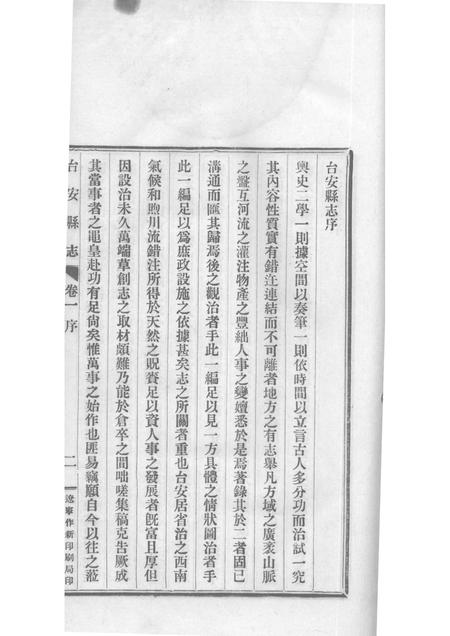 台安縣志序
輿史二學一則據空間以奏筆一則依時間以立言古人多分功而治試一究
其內容性質實有錯迕連結而不可離者地方之有志舉凡方域之廣袤山脈
之盤互河流之灌注物產之豐絀人事之變嬗悉於是焉著錄其於二者固已
溝通而匯其歸焉後之觀治者手此一編足以見一方具體之情狀圖治者手
此一編足以爲庶政設施之依據甚矣志之所關者重也台安居省治之西南
氣候和煦川流錯注所得於天然之貺賚足以資人事之發展者旣富且厚但
因設治未久萬端草創志之取材頗難乃能於倉卒之間咄嗟集稿克吿厥成
其當事者之黽皇赴功有足尙矣惟萬事之始作也匪易竊願自今以往之蒞
台安縣志 卷一 序 二 遼寧作新印刷局印